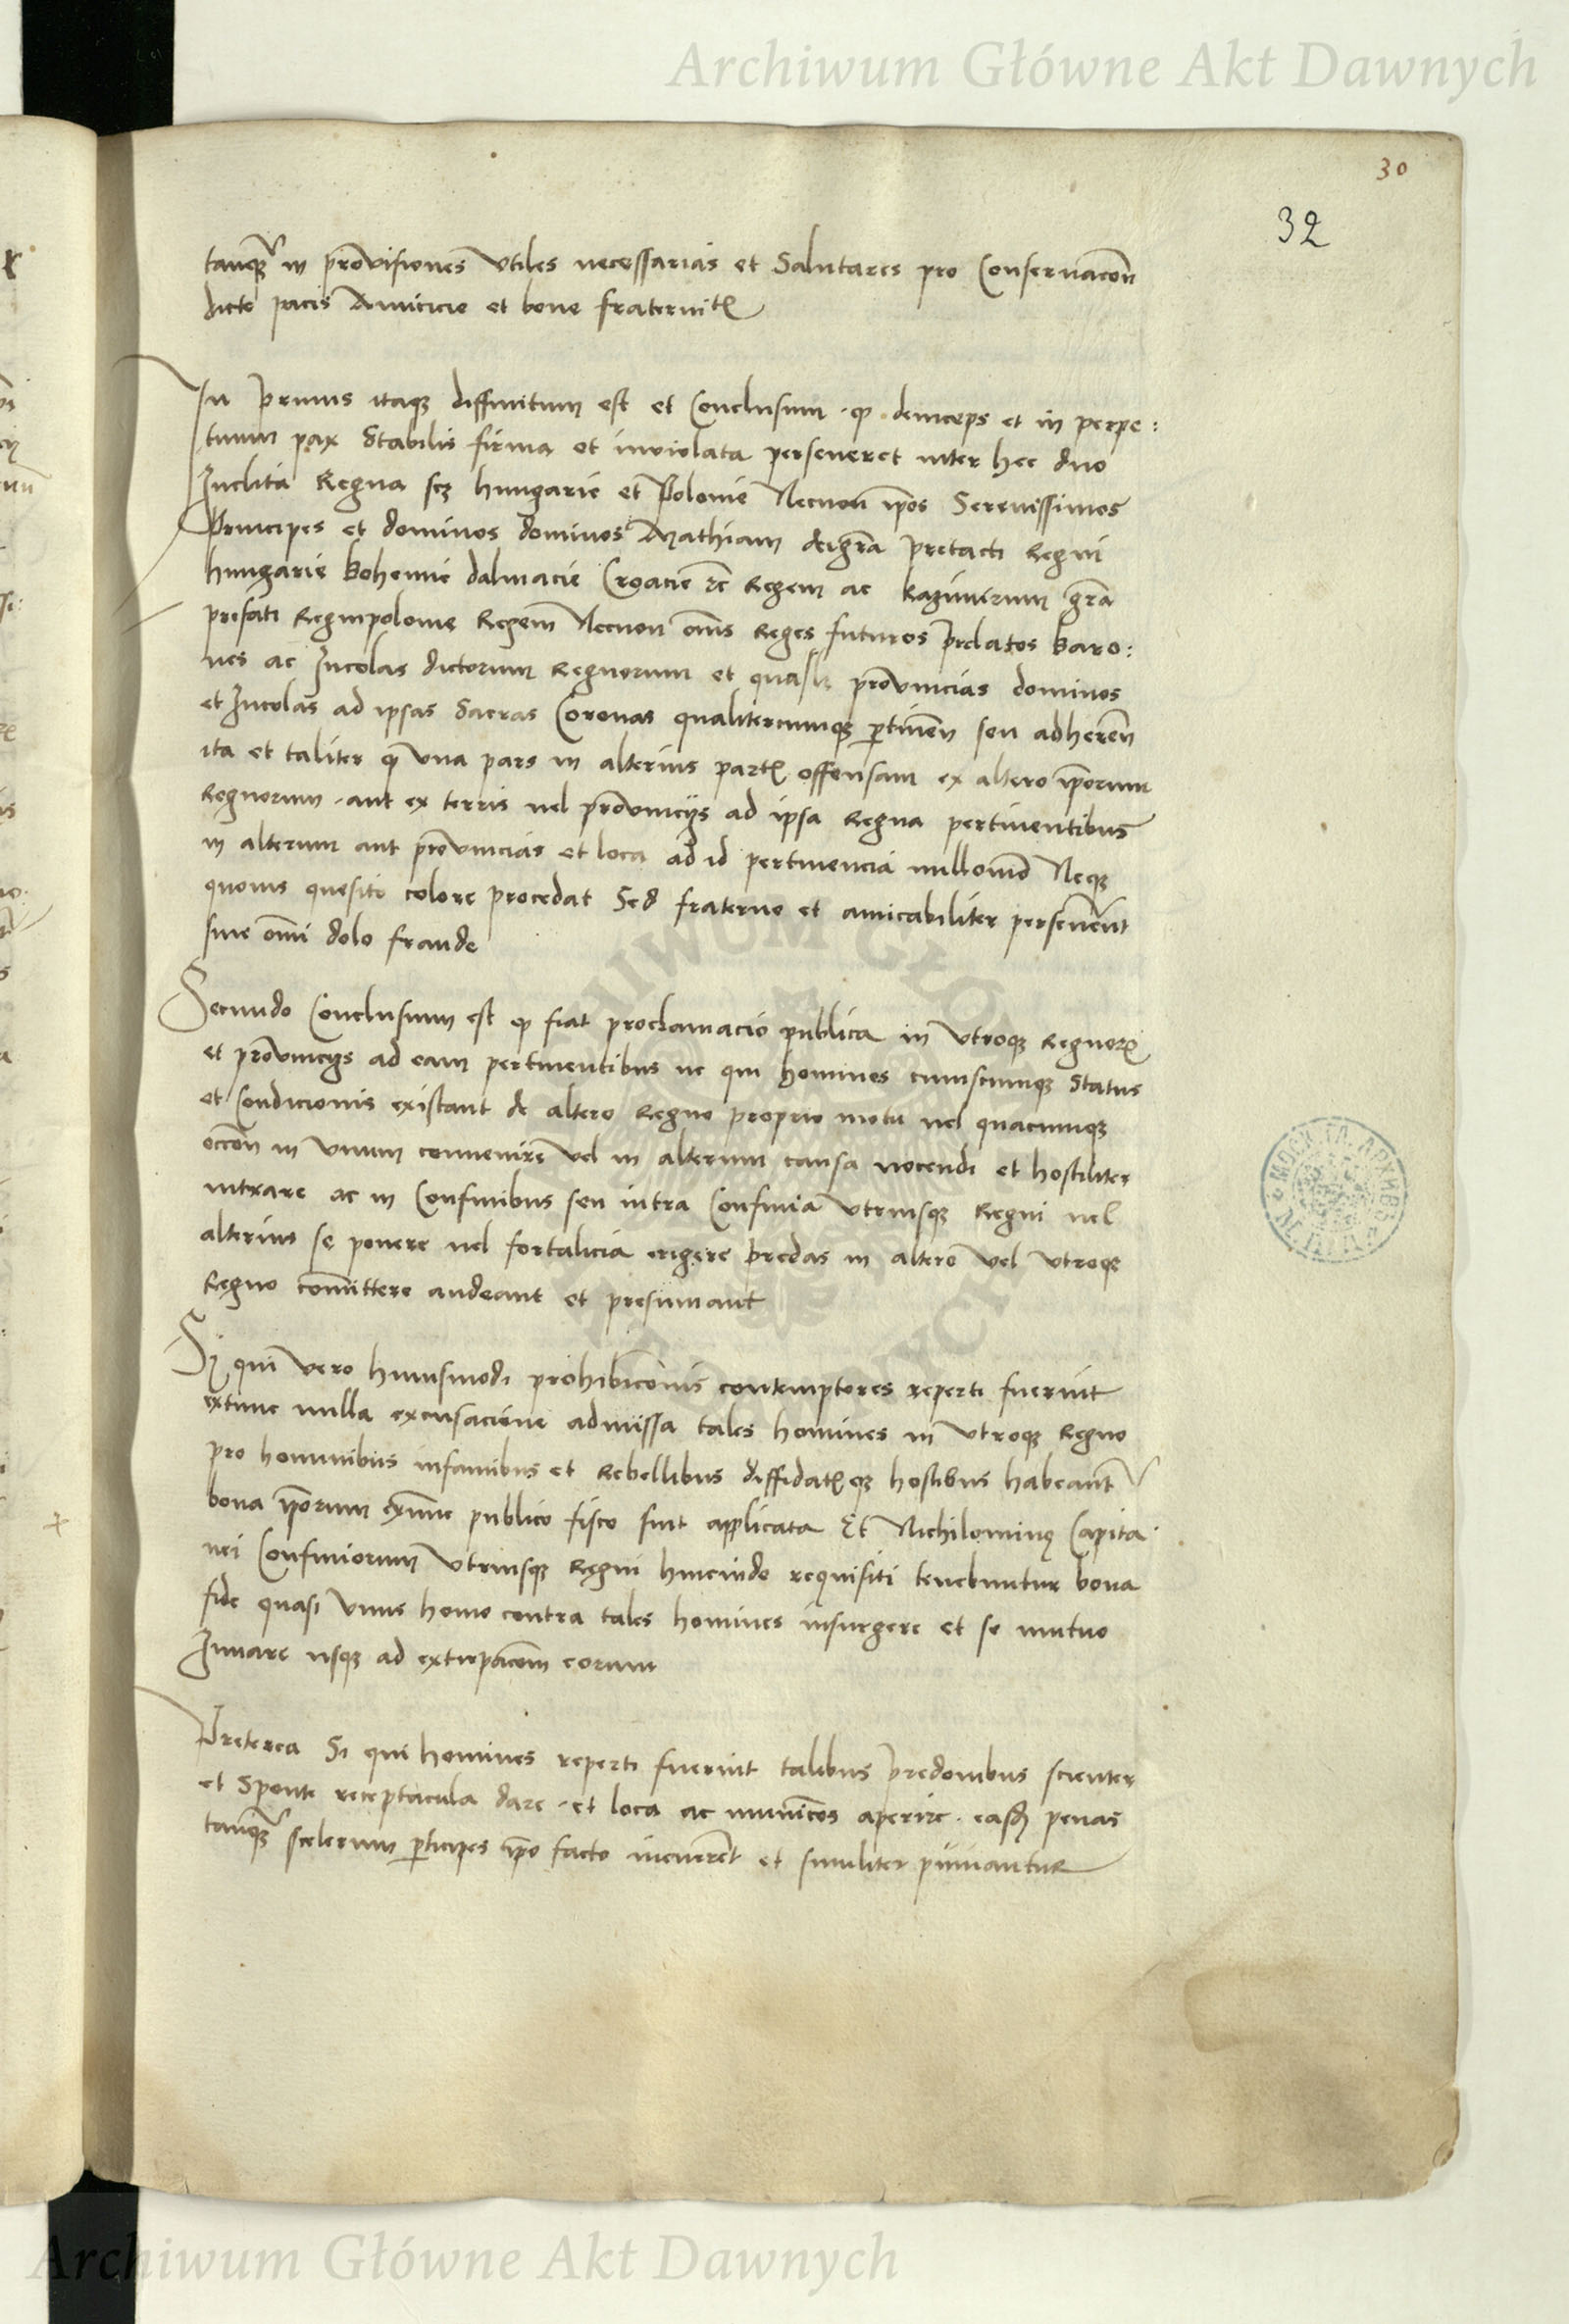 Archiwum Główne Akt Dawnych
30
32
tanqȝ in provisiones Vtiles necessarias et Salutares pro Conseruacōn
dicte pacis Amicicie et bone fraternitꝭ
In primis itaqȝ diffinitum est et Conclusum ꝙ deinceps et in perpe:
tuum pax Stabilis firma et inviolata perseueret inter hec duo
Inclita Regna scȝ hungarie et Polonie Necnon ip̄os Serenissimos
Principes et dominos dominos Mathiam dei gr̄a pretacti Regni
hungarie bohemie dalmacie Croacie ꝛc̄ Regem ac kazimirum gr̄a
prefati Regni polonie Regem Necnon om̄s Reges futuros prelatos baro:
nes ac Incolas dictorum Regnorum et quasl provincias dominos
et Incolas ad ipsas Sacras Coronas qualitercumqȝ ꝑtinen̄ seu adheren̄
ita et taliter ꝙ vna pars in alterius partꝭ offensam ex altero ip̄orum
Regnorum aut ex terris uel provincijs ad ipsa Regna pertinentibus
in alterum aut provincias et loca ad id pertinencia nullomō Neqȝ
quouis quesito colore procedat Sed fraterne et amicabiliter perseuerēt
sine om̄i dolo fraude
Secundo Conclusum est ꝙ fiat proclamacio publica in vtroqȝ regnorꝝ
et provincijs ad eam pertinentibus ne qui homines cuiuscumqȝ Status
et Condicionis existant de altero Regno proprio motu uel quacumqȝ
occōn in vnum conuenire vel in alterum causa nocendi et hostiliter
intrare ac in Confinibus seu intra Confinia vtriusqȝ Regni uel
alterius se ponere uel fortalicia erigere predas in altero vel vtroqȝ
Regno com̄ittere audeant et presumant
Si qui vero huiusmodi prohibicōnis contemptores reperti fuerint
extunc nulla excusacione admissa tales homines in vtroqȝ Regno
pro hominibus infamibus et Rebellibus diffidatꝭ eqȝ hostibus habeant
bona ip̄orum extunc publico fisco sint applicata Et Nichilominꝰ Capita
nei Confiniorum vtriusqȝ Regni hincinde requisiti tenebuntur bona
fide quasi vnus homo contra tales homines insurgere et se mutuo
Iuuare usqȝ ad extirpacōem eorum
Preterea Si qui homines reperti fuerint talibus predonibus scienter
et Sponte receptacula dare et loca ac municōes aperire easd penas
tanqȝ scelerum ꝑticipes ip̄o facto incurrēt et similiter puniantur
Archiwum Główne Akt Dawnych